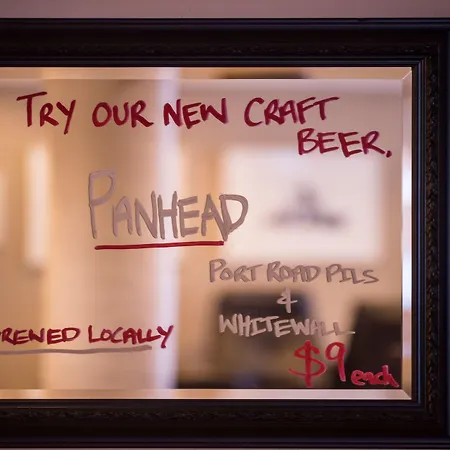 TRY OUR NEW CRAFT
BEER.
PANHEAD
PORT ROAD PILS
&
WHITEWALL
BREWED LOCALLY
$9 each